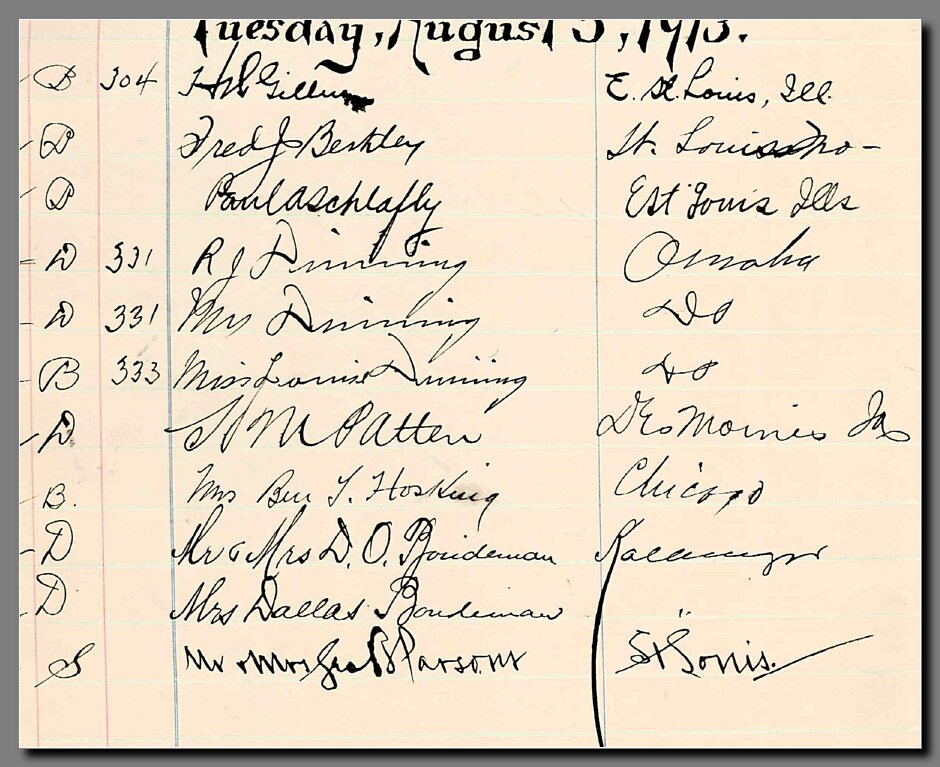 Tuesday, August 5, 1913.
B 304 E. St. Louis, Ill.
D Fred J Berkley St. Louis Mo -
D Paul A Schlafly E St Louis Ills
D 331 R J Dinning Omaha
D 331 Mrs Dinning Do
B 333 Miss Louise Dinning Do
D Patten Des Moines Ia
B. Mrs Ben T. Hosking Chicago
D Mr & Mrs D. O. Boudeman Kalamazoo
D Mrs Dallas Boudeman "
S Mr & Mrs Geo B Parsons St Louis.